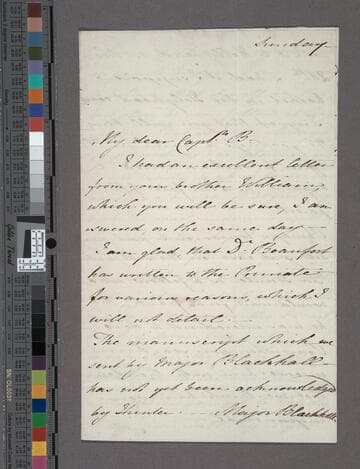 Sunday
My dear Captn. B.
I had an excellent letter
from your brother William,
which you will be sure, I an
swered, on the same day —
I am glad, that Dr. Beaufort
has written to the Primate
for various reasons, which I
will not detail —
The manuscript which we
sent by Major Blackhall —
has not yet been acknowledged
by Hunter — Major Blackhall